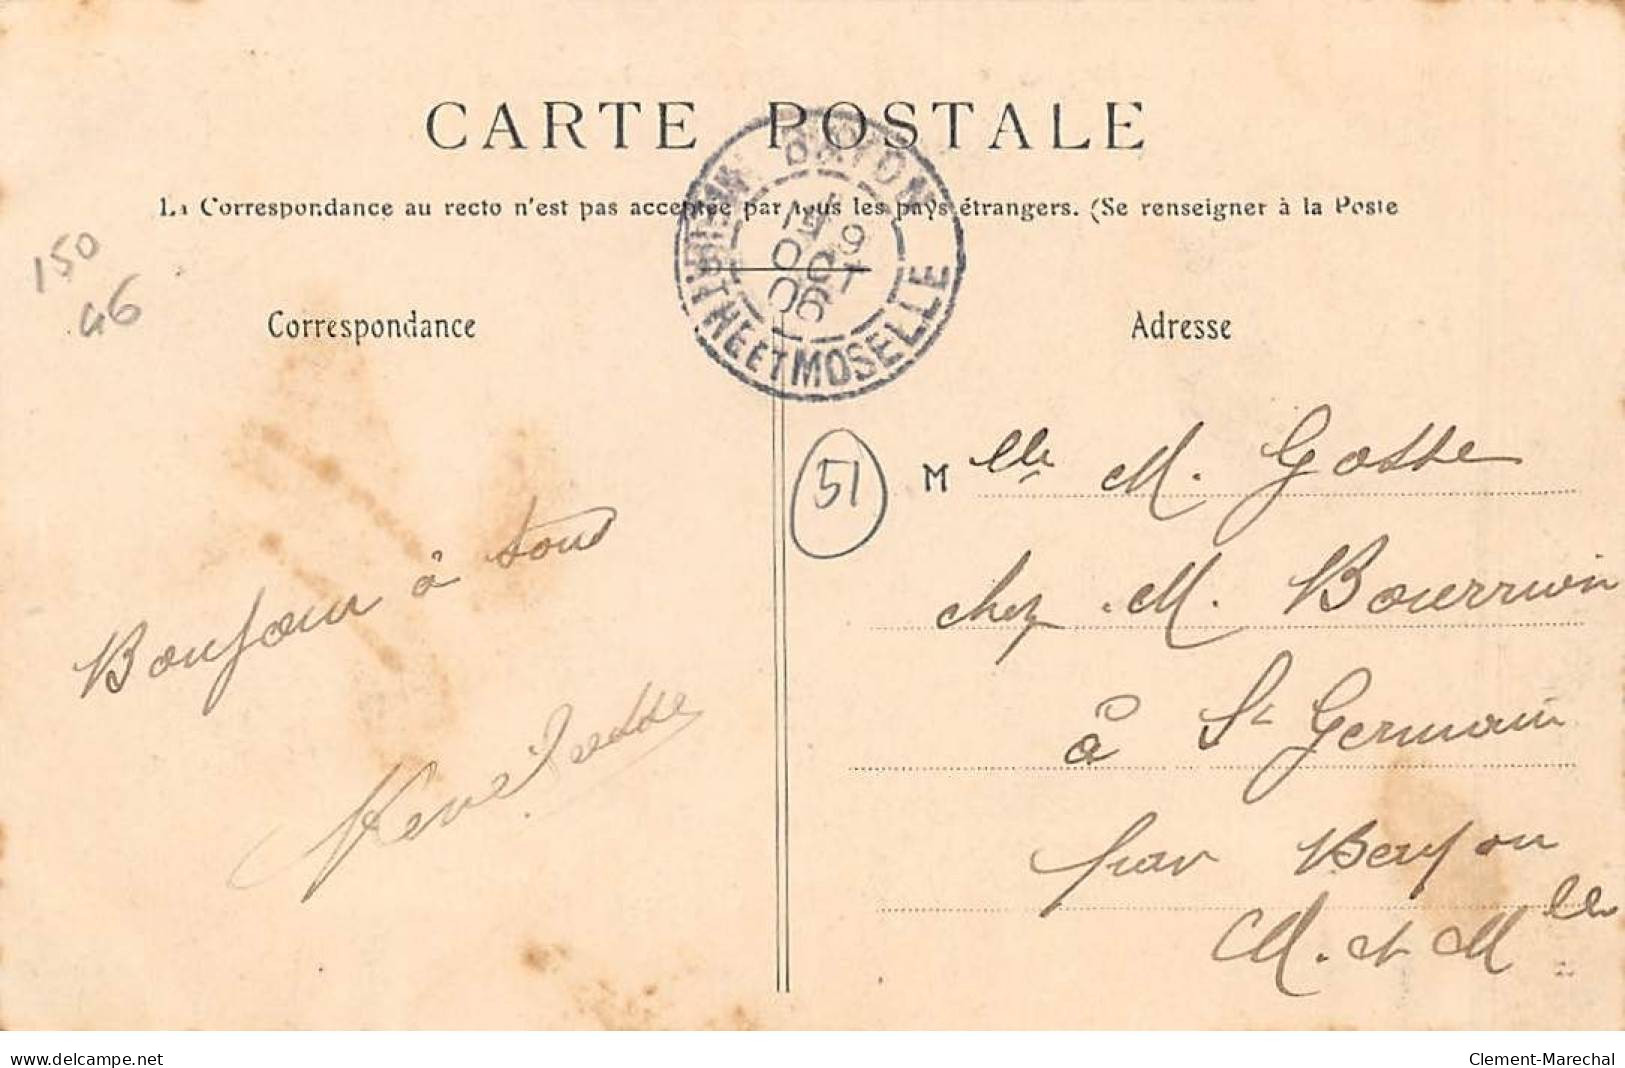 CARTE POSTALE
La Correspondance au recto n'est pas acceptée par tous les pays étrangers. (Se renseigner à la Poste
BAYON
9
OCT
06
MEURTHE ET MOSELLE
150
46
Correspondance
Adresse
51
Bonjour à tous
Mlle M. Gosse
chez M. Bourrion
à St Germain
par Bayon
M. et Mlle
www.delcampe.net
Clement-Marechal